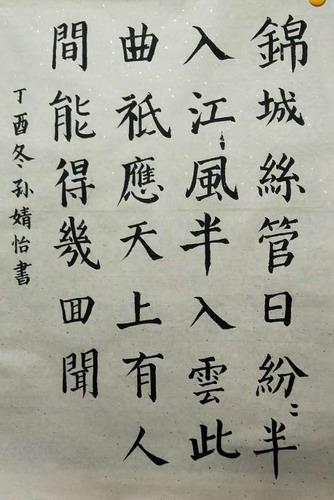 錦城絲管日紛〻半
入江〻風半入雲此
曲祇應天上有人
間能得幾回聞
丁酉冬孙婧怡書